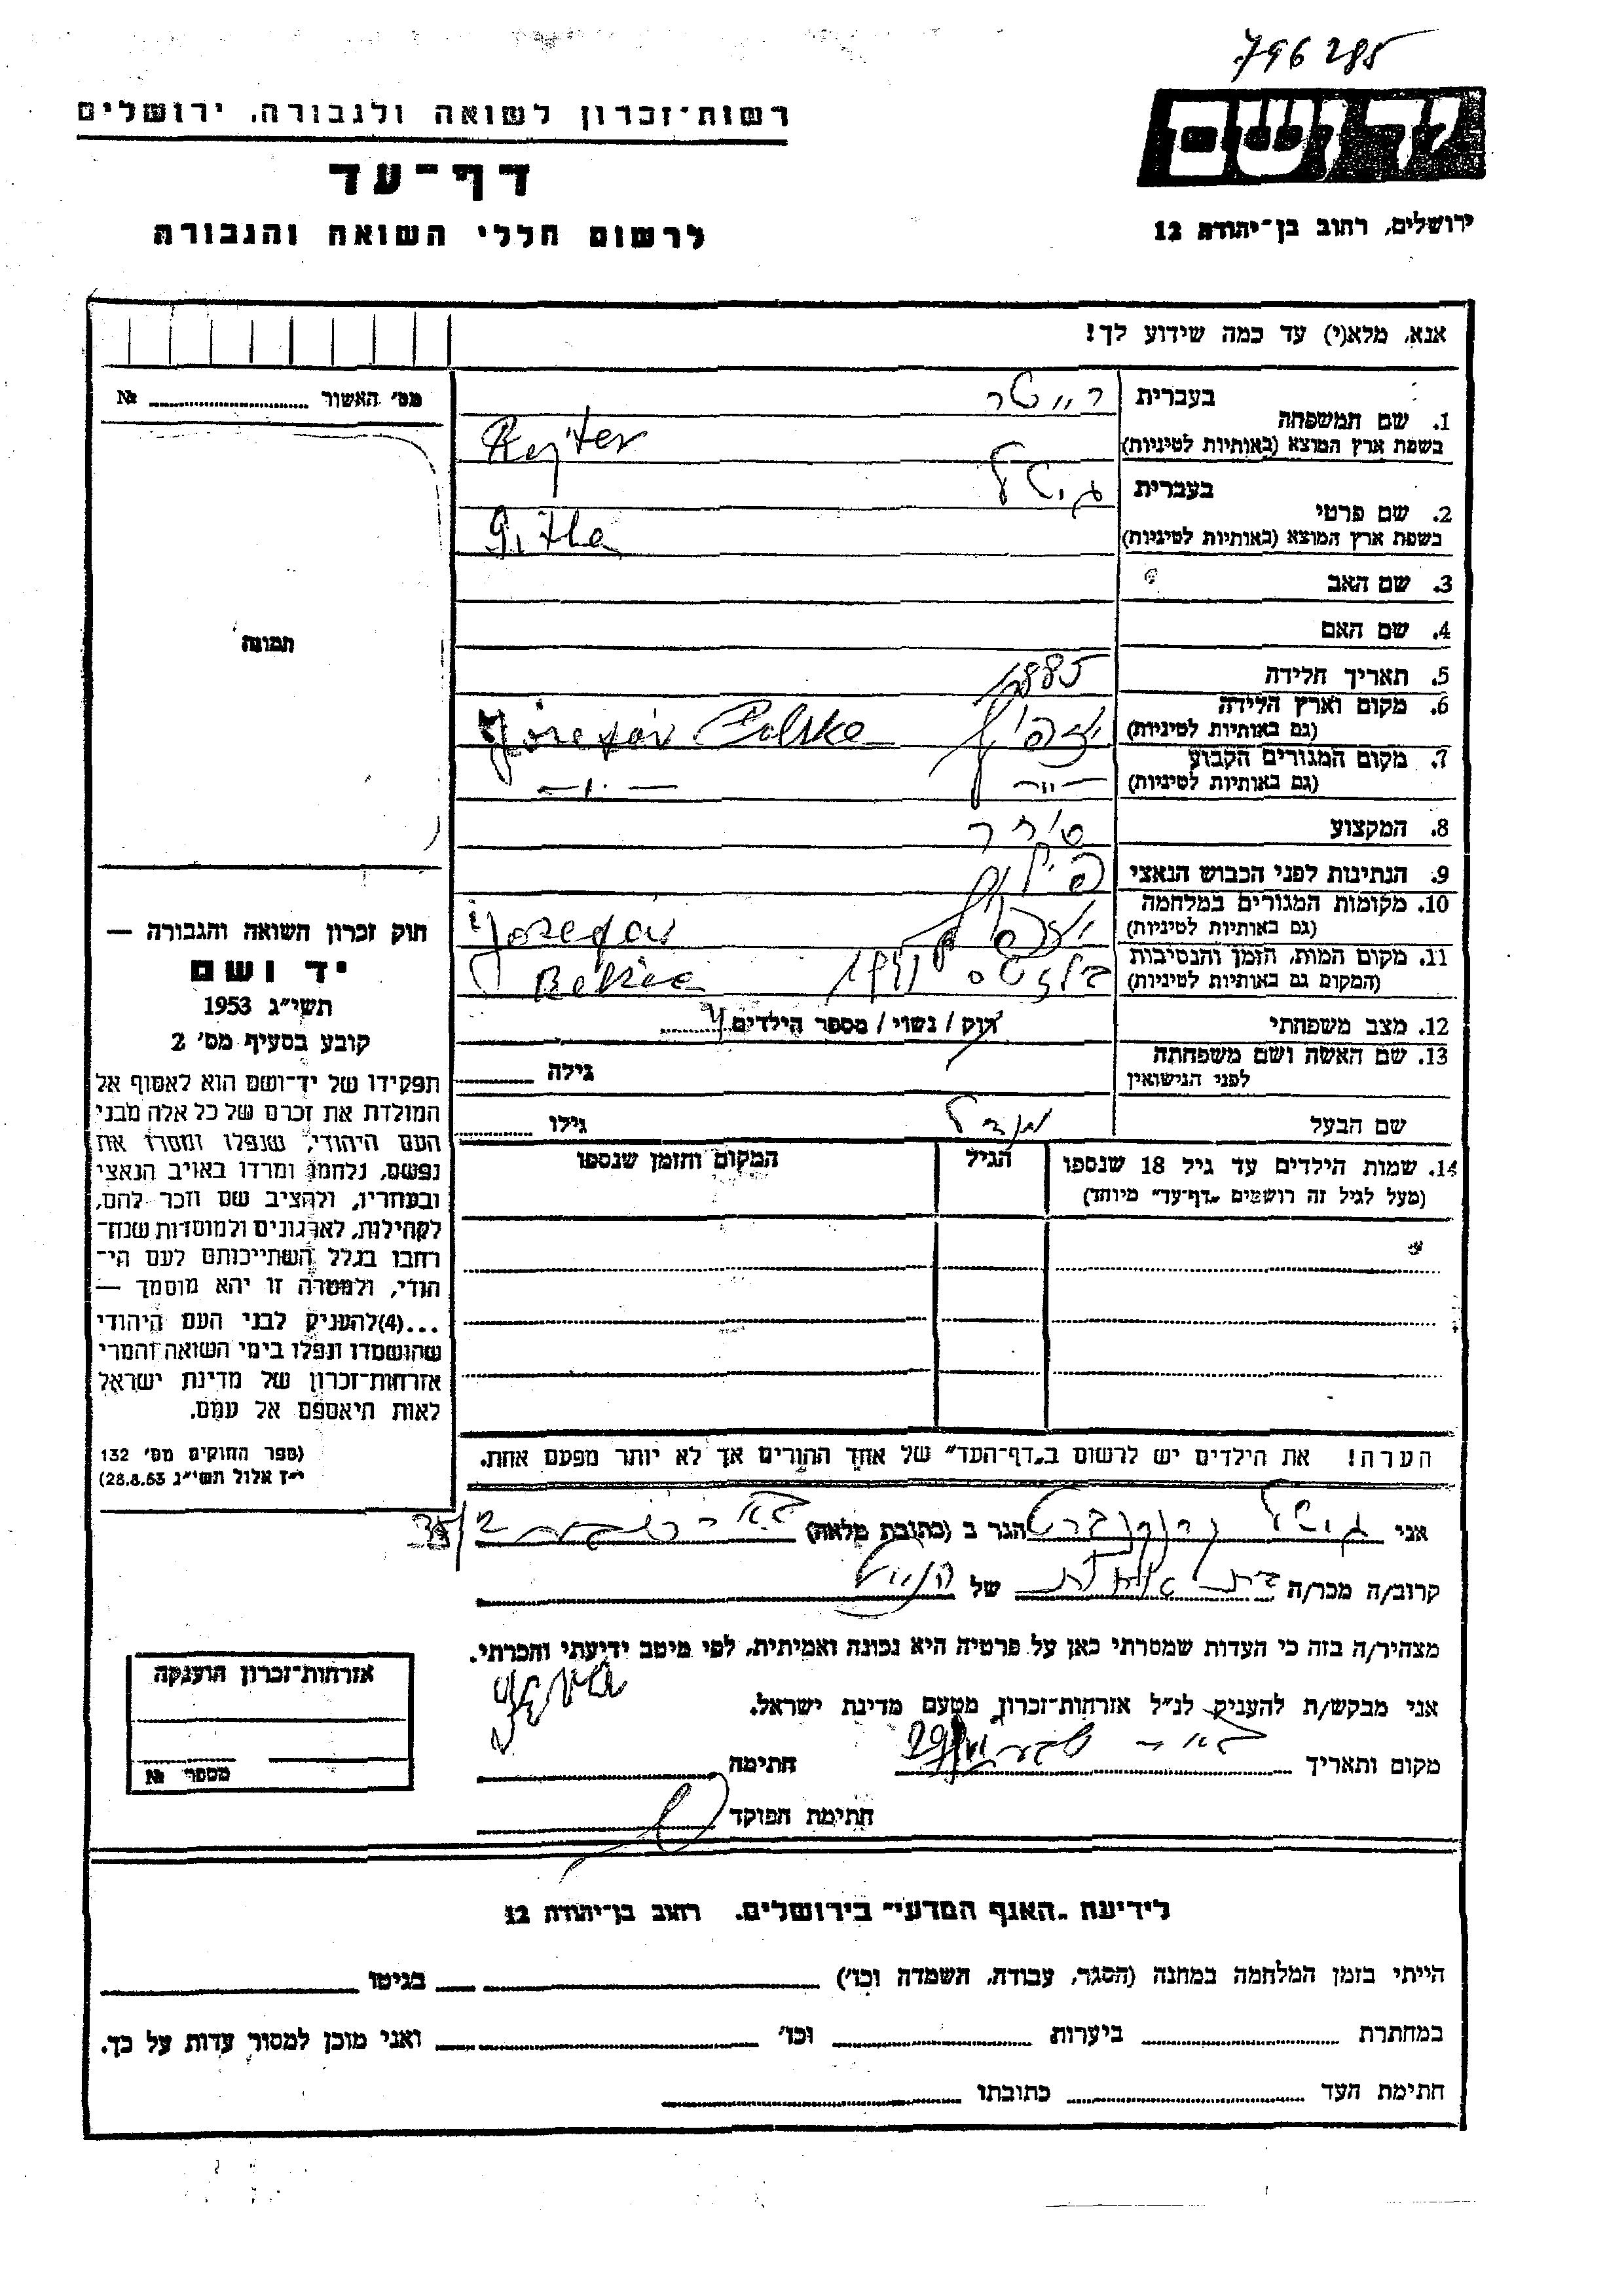 796285
רשות־זכרון לשואה ולגבורה. ירושלים
יד ושם
דף־עד
לרשום חללי השואה והגבורה
ירושלים, רחוב בן־יהודה 12
אנא, מלא(י) עד כמה שידוע לך!
מס׳ האשור № 
תמונה
בעברית רייטר
1. שם המשפחה
בשפת ארץ המוצא (באותיות לטיניות) Rejter
בעברית גיטל
2. שם פרטי
בשפת ארץ המוצא (באותיות לטיניות) Gitla
3. שם האב
4. שם האם
5. תאריך הלידה 1885
6. מקום וארץ הלידה
(גם באותיות לטיניות) יוזפוב Józefów Polska
7. מקום המגורים הקבוע
(גם באותיות לטיניות) — " — — " —
8. המקצוע סוחר
9. הנתינות לפני הכבוש הנאצי
10. מקומות המגורים במלחמה
(גם באותיות לטיניות) Jozefów
11. מקום המות, הזמן והנסיבות
(המקום גם באותיות לטיניות)
12. מצב משפחתי רוק / נשוי / מספר הילדים 4
13. שם האשה ושם משפחתה
לפני הנישואין גילה
שם הבעל גילו
14. שמות הילדים עד גיל 18 שנספו הגיל המקום והזמן שנספו
(מעל לגיל זה רושמים „דף־עד״ מיוחד)
הערה! את הילדים יש לרשום ב„דף־העד״ של אחד ההורים אך לא יותר מפעם אחת.
חוק זכרון השואה והגבורה —
יד ושם
תשי״ג 1953
קובע בסעיף מס׳ 2
תפקידו של יד־ושם הוא לאסוף אל
המולדת את זכרם של כל אלה מבני
העם היהודי, שנפלו ומסרו את
נפשם, נלחמו ומרדו באויב הנאצי
ובעוזריו, ולהציב שם וזכר להם,
לקהילות, לארגונים ולמוסדות שנח־
רבו בגלל השתייכותם לעם הי־
הודי, ולמטרה זו יהא מוסמך —
...(4)להעניק לבני העם היהודי
שהושמדו ונפלו בימי השואה והמרי
אזרחות־זכרון של מדינת ישראל
לאות היאספם אל עמם.
(ספר החוקים מס׳ 132
י״ז אלול תשי״ג 28.8.53)
אני גיטל הגר ב (כתובת מלאה) באר שבע
קרוב/ה מכר/ה של
מצהיר/ה בזה כי העדות שמסרתי כאן על פרטיה היא נכונה ואמיתית, לפי מיטב ידיעתי והכרתי.
אני מבקש/ת להעניק לנ״ל אזרחות־זכרון מטעם מדינת ישראל.
מקום ותאריך באר שבע חתימה
חתימת הפוקד
אזרחות־זכרון הוענקה
מספר №
לידיעת „האגף המדעי״ בירושלים. רחוב בן־יהודה 12
הייתי בזמן המלחמה במחנה (הסגר, עבודה, השמדה וכו׳) בגיטו
במחתרת ביערות וכו׳ ואני מוכן למסור עדות על כך.
חתימת העד כתובתו